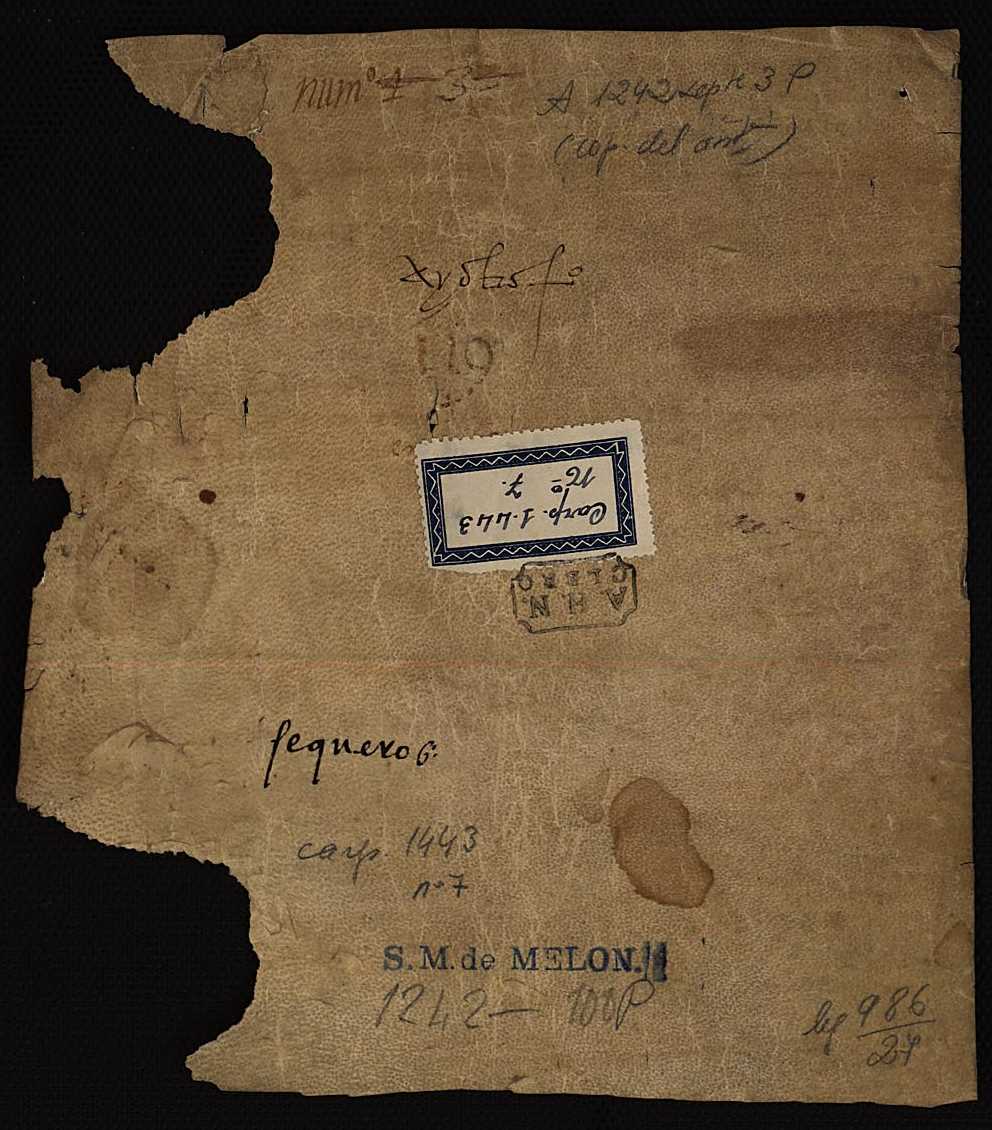 numº 1 3
A 1242 sept 3 P
(cop. del ant)
LIO
Carp. 1.443
Nº 7.
A. H. N.
CLERO
sequero G:
carp. 1443
nº 7
S. M. de MELON.
1242 — 100 P
leg 986
27